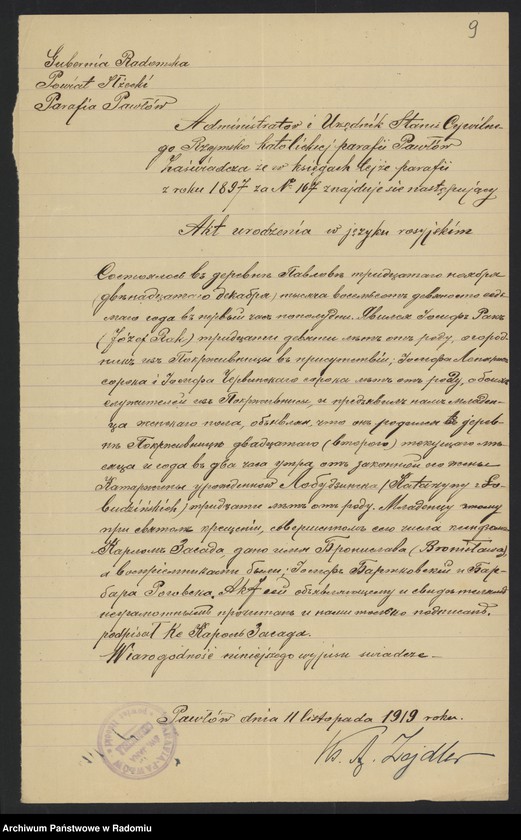 9
Gubernia Radomska
Powiat Iłżecki
Parafia Pawłów
Administrator i Urzędnik Stanu Cywilne-
go Rzymsko katolickiej parafii Pawłów
Zaświadcza że w księgach tejże parafii
z roku 1897 za № 167 znajduje się następujący
Akt urodzenia w języku rosyjskim
Состоялось въ деревнѣ Павловѣ тридцатаго ноября
(двѣнадцатаго декабря) тысяча восемьсотъ девяносто седь
маго года въ первый часъ пополудни. Явился Іосифъ Ракъ
(Józef Rak) тридцати девяти лѣтъ отъ роду, огород
никъ изъ Покрживницы въ присутствіи, Іосифа
сорока і Іосифа Червинскаго сорока лѣтъ отъ роду, обоихъ
служителей изъ Покрживницы, и предъявилъ намъ младен-
ца женскаго пола, объявляя, что онъ родился въ дерев-
нѣ Покрживницѣ двадцатаго (второго) текущаго мѣ-
сяца и года въ два часа утра, отъ законной его жены
Катаржины урожденной Лободзинска (Katarzyny z Ło-
budzińskich) тридцати лѣтъ отъ роду. Младенцу этому
при святомъ крещеніи, совершенномъ сего числа ксендзомъ
Каролемъ Засада, дано имя Бронислава (Bronisława)
а воспріемниками были: Іосифъ Бартковскій и Бар-
бара Роговска. Актъ сей объявляющему и свидѣтелямъ
неграмотнымъ прочитанъ и нами только подписанъ.
podpisał Кс Кароль Засада.
Wiarogodność niniejszego wypisu świadczę —
Pawłów dnia 11 listopada 1919 roku.
Ks. A. Zajdler
Archiwum Państwowe w Radomiu